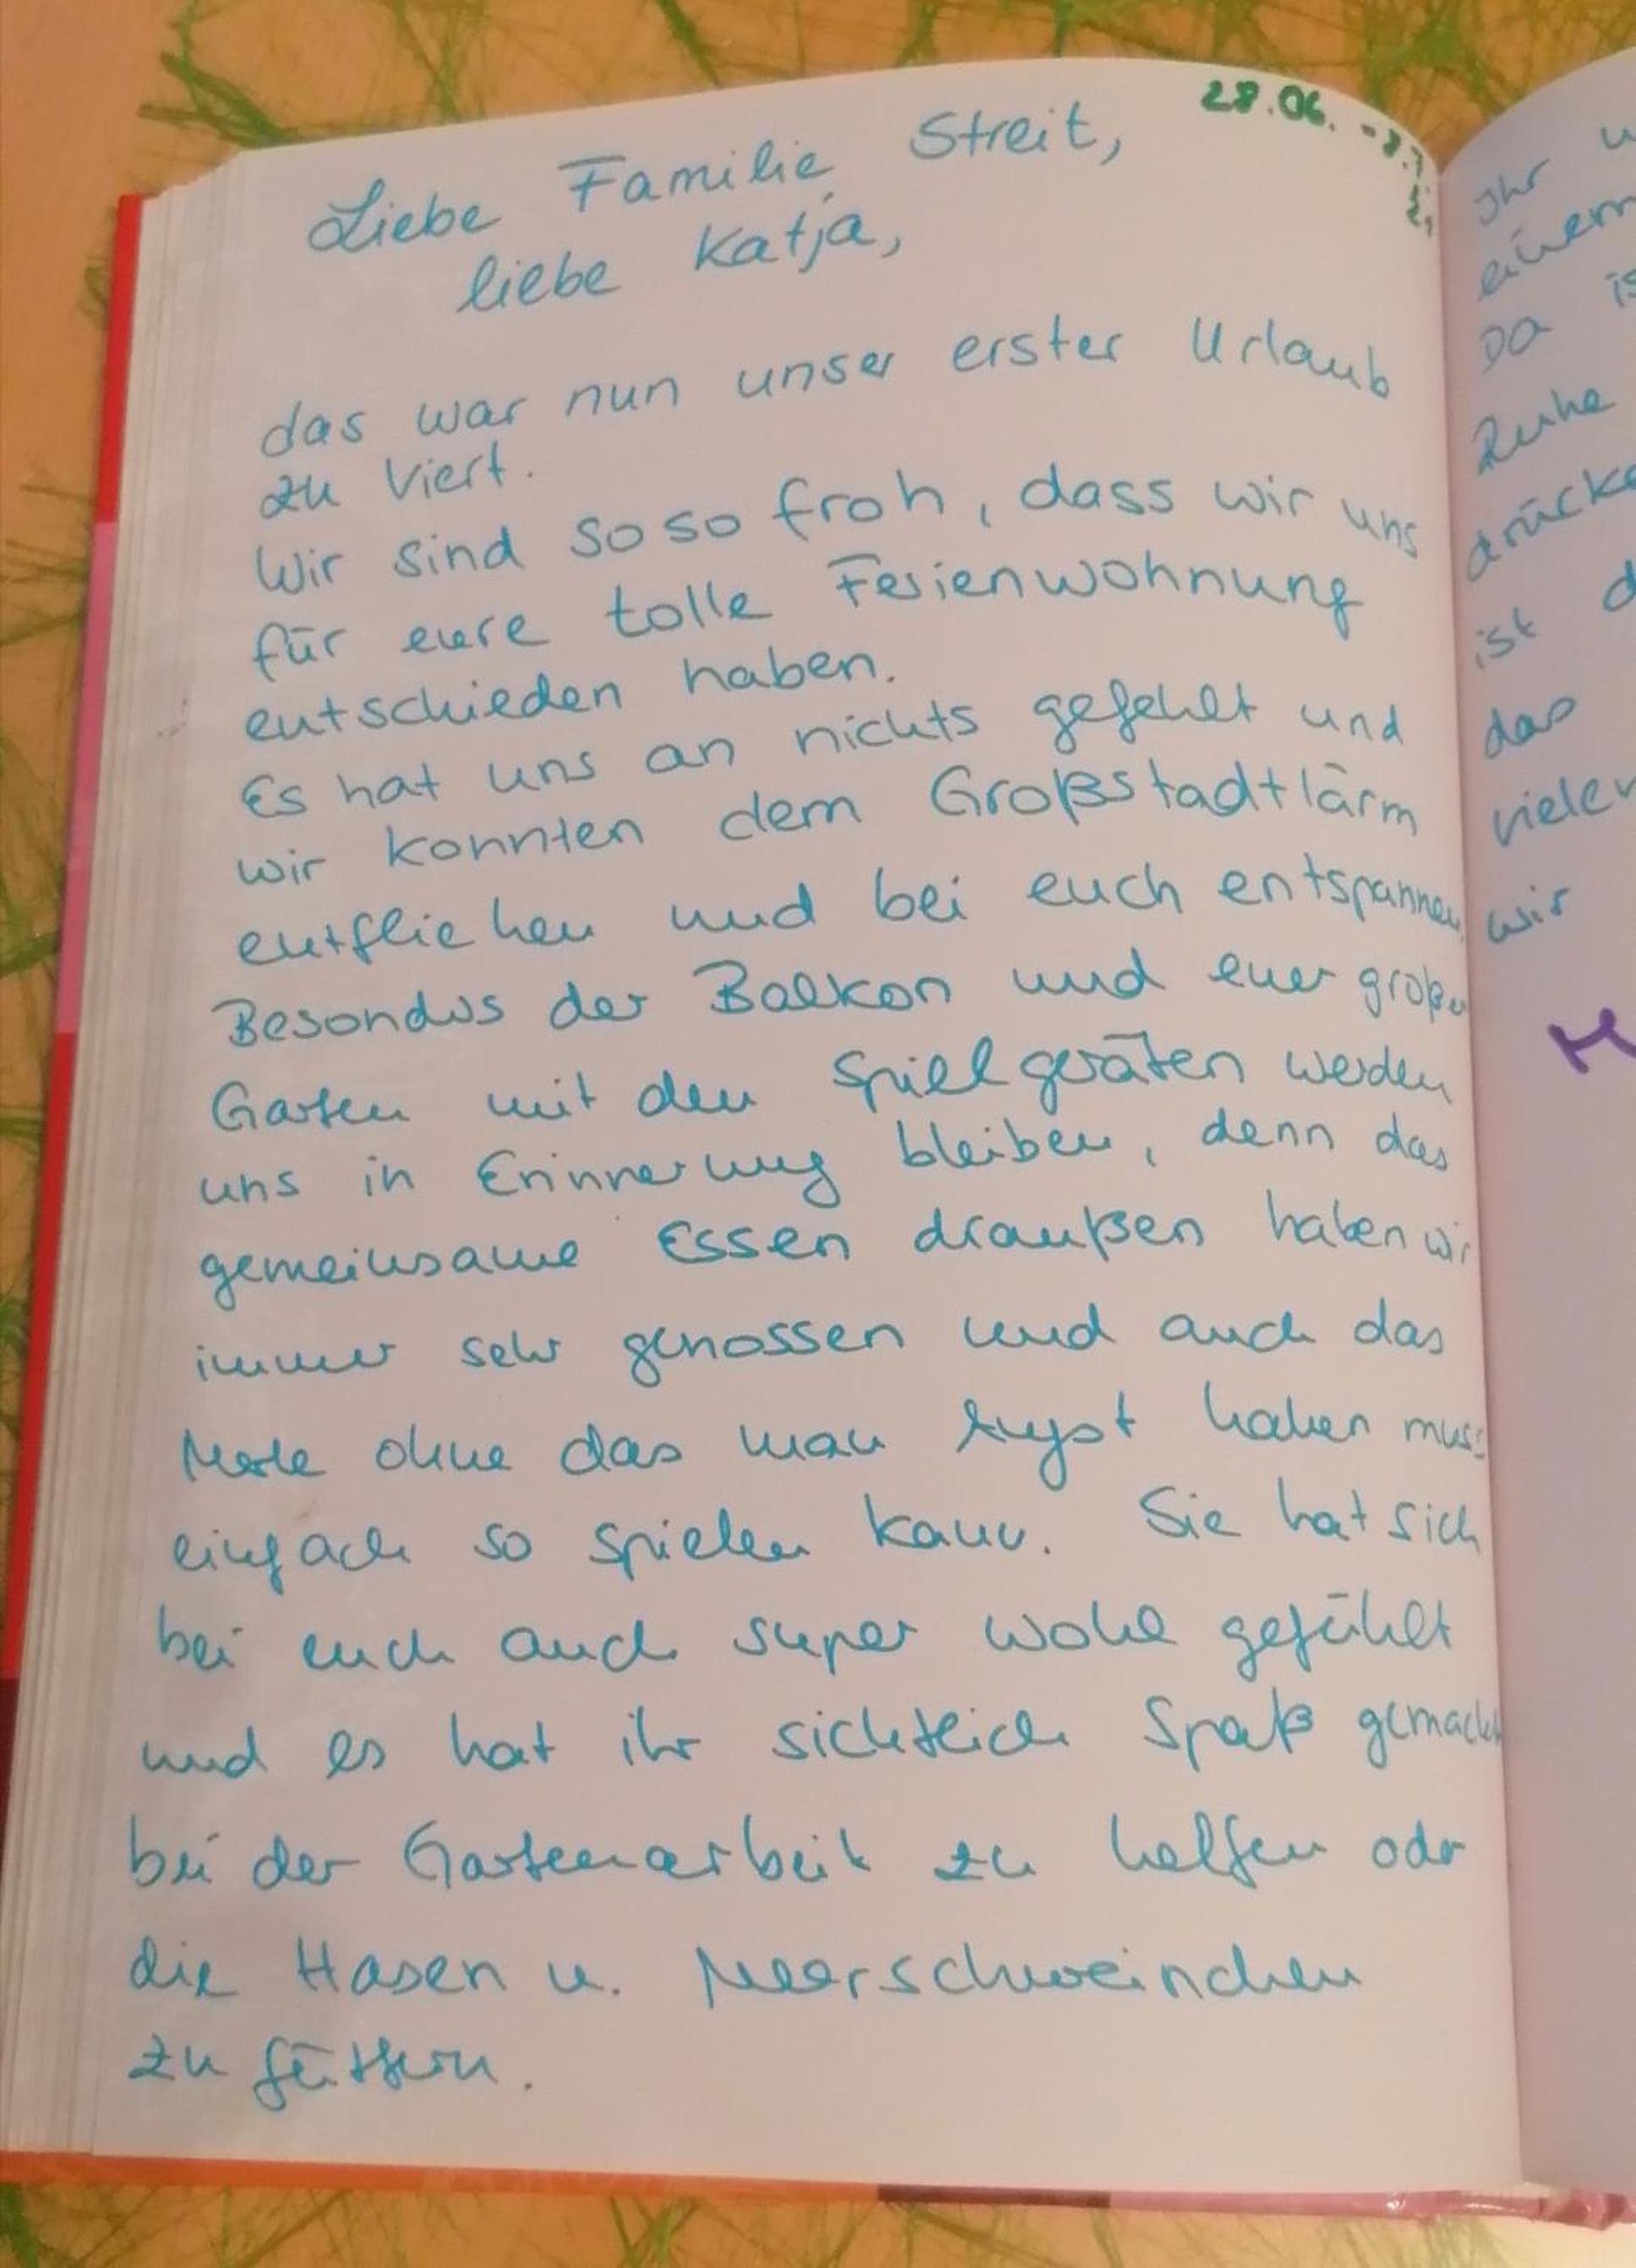 28.06. -
Liebe Familie Streit,
liebe Katja,
das war nun unser erster Urlaub
zu Viert.
Wir sind so so froh, dass wir uns
für eure tolle Ferienwohnung
entschieden haben.
Es hat uns an nichts gefehlt und
wir konnten dem Großstadtlärm
entfliehen und bei euch entspannen.
Besonders der Balkon und euer großer
Garten mit den Spielgeräten werden
uns in Erinnerung bleiben, denn das
gemeinsame Essen draußen haben wir
immer sehr genossen und auch das
Merle ohne das man Angst haben muss
einfach so spielen kann. Sie hat sich
bei euch auch super wohl gefühlt
und es hat ihr sichtlich Spaß gemacht
bei der Gartenarbeit zu helfen oder
die Hasen u. Meerschweinchen
zu füttern.
Ihr
einem
Da
Ruhe
ist
das
wir